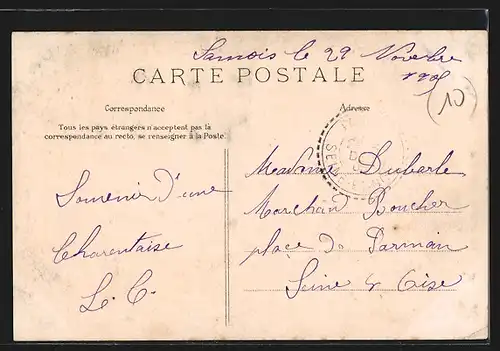 Samois le 29 Novembre
1905
CARTE POSTALE
10
Correspondance
Adresse
Tous les pays étrangers n'acceptent pas la
correspondance au recto, se renseigner à la Poste
SEINE
Souvenir d'une
Charentaise
L. C.
Madame Dubarle
Marchan Boucher
place de Parmain
Seine & Oise